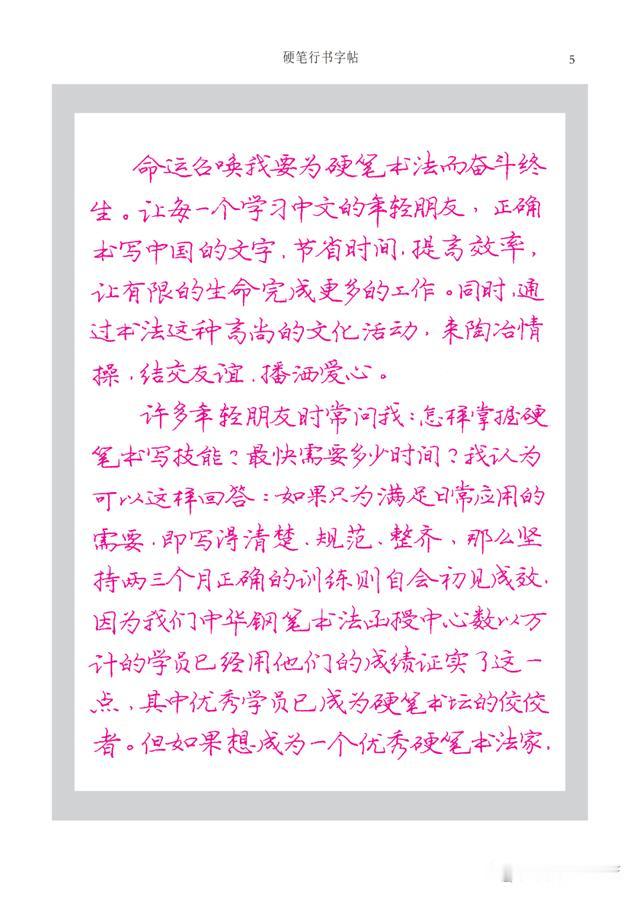 硬笔行书字帖
5
命运召唤我要为硬笔书法而奋斗终
生。让每一个学习中文的年轻朋友，正确
书写中国的文字，节省时间，提高效率，
让有限的生命完成更多的工作。同时，通
过书法这种高尚的文化活动，来陶冶情
操，结交友谊，播洒爱心。
许多年轻朋友时常问我：怎样掌握硬
笔书写技能？最快需要多少时间？我认为
可以这样回答：如果只为满足日常应用的
需要，即写得清楚、规范、整齐，那么坚
持两三个月正确的训练则自会初见成效，
因为我们中华钢笔书法函授中心数以万
计的学员已经用他们的成绩证实了这一
点，其中优秀学员已成为硬笔书坛的佼佼
者。但如果想成为一个优秀硬笔书法家，